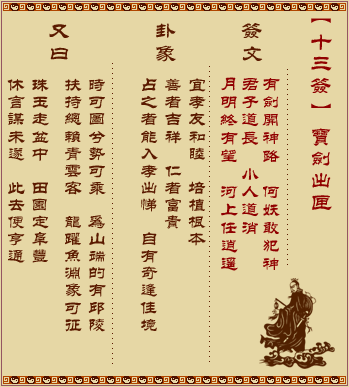 【十三簽】 寶劍出匣
簽文
有劍開神路 何妖敢犯神
君子道長 小人道消
月明終有望 河上任逍遙
卦象
宜孝友和睦 培植根本
善者吉祥 仁者富貴
占之者能入孝出悌 自有奇逢佳境
又曰
時可圖兮勢可乘 爲山瑞的有邱陵
扶持總賴青雲客 龍躍魚淵象可征
珠玉走盆中 田園定阜豐
休言謀未遂 此去便亨通